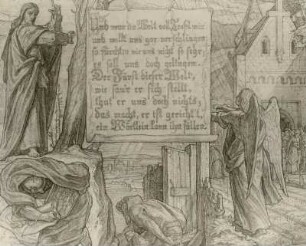 Und wenn die Welt voll Teufel wär
und wollt uns gar verschlingen
so fürchten wir uns nicht so sehr,
es soll uns doch gelingen.
Der Fürst dieser Welt,
wie sau'r er sich stellt,
thut er uns doch nichts,
das macht, er ist gericht't
ein Wörtlein kann ihn fällen.